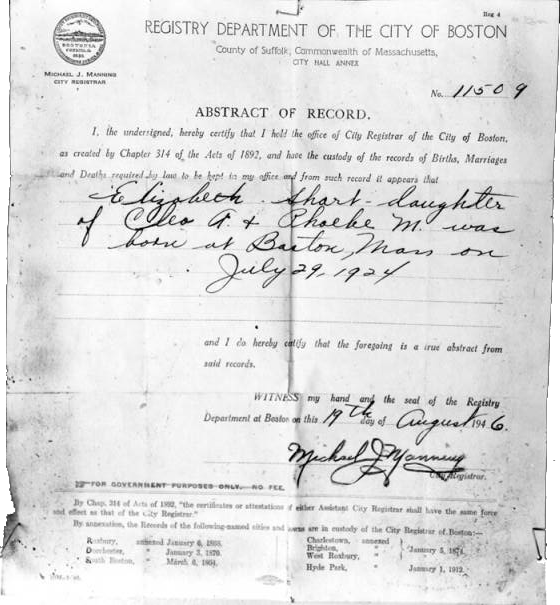 Reg 4
REGISTRY DEPARTMENT OF THE CITY OF BOSTON
County of Suffolk, Commonwealth of Massachusetts,
CITY HALL ANNEX
MICHAEL J. MANNING
CITY REGISTRAR
No. 11509
ABSTRACT OF RECORD.
I, the undersigned, hereby certify that I hold the office of City Registrar of the City of Boston,
as created by Chapter 314 of the Acts of 1892, and have the custody of the records of Births, Marriages
and Deaths required by law to be kept in my office and from such record it appears that
Elizabeth Short - daughter
of Cleo A. & Phoebe M. was
born at Boston, Mass on
July 29, 1924
and I do hereby certify that the foregoing is a true abstract from
said records.
WITNESS my hand and the seal of the Registry
Department at Boston on this 19th day of August 1946.
Michael J Manning
City Registrar.
FOR GOVERNMENT PURPOSES ONLY. NO FEE.
By Chap. 314 of Acts of 1892, "the certificates or attestations of either Assistant City Registrar shall have the same force
and effect as that of the City Registrar."
By annexation, the Records of the following-named cities and towns are in custody of the City Registrar of Boston:—
Roxbury, annexed January 6, 1868.
Dorchester, " January 3, 1870.
South Boston, " March 6, 1804.
Charlestown, annexed
Brighton, "
West Roxbury, "
January 5, 1874.
Hyde Park, " January 1, 1912.